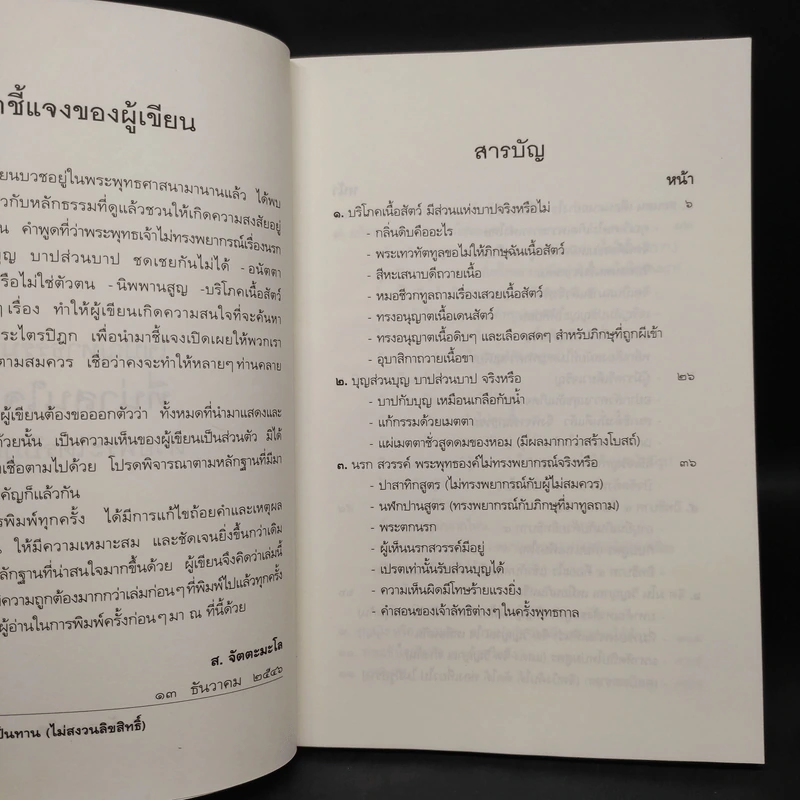 าชี้แจงของผู้เขียน
ยนบวชอยู่ในพระพุทธศาสนามานานแล้ว ได้พบ
วกับหลักธรรมที่ดูแล้วชวนให้เกิดความสงสัยอยู่
น คำพูดที่ว่าพระพุทธเจ้าไม่ทรงพยากรณ์เรื่องนรก
บุญ บาปส่วนบาป ชดเชยกันไม่ได้ -อนัตตา
รือไม่ใช่ตัวตน -นิพพานสูญ -บริโภคเนื้อสัตว์
ๆ เรื่อง ทำให้ผู้เขียนเกิดความสนใจที่จะค้นหา
ระไตรปิฎก เพื่อนำมาชี้แจงเปิดเผยให้พวกเรา
ตามสมควร เชื่อว่าคงจะทำให้หลายๆ ท่านคลาย
ผู้เขียนต้องขอออกตัวว่า ทั้งหมดที่นำมาแสดงและ
ด้วยนั้น เป็นความเห็นของผู้เขียนเป็นส่วนตัว มิได้
งเชื่อตามไปด้วย โปรดพิจารณาตามหลักฐานที่มีมา
คัญก็แล้วกัน
รพิมพ์ทุกครั้ง ได้มีการแก้ไขถ้อยคำและเหตุผล
ให้มีความเหมาะสม และชัดเจนยิ่งขึ้นกว่าเดิม
ลักฐานที่น่าสนใจมากขึ้นด้วย ผู้เขียนจึงคิดว่าเล่มนี้
ความถูกต้องมากกว่าเล่มก่อนๆ ที่พิมพ์ไปแล้วทุกครั้ง
ผู้อ่านในการพิมพ์ครั้งก่อนๆ มา ณ ที่นี้ด้วย
ส. จัตตะมะโล
๑๓ ธันวาคม ๒๕๔๖
ป็นทาน (ไม่สงวนลิขสิทธิ์)
สารบัญ
หน้า
๑. บริโภคเนื้อสัตว์ มีส่วนแห่งบาปจริงหรือไม่ ๖
- กลิ่นดิบคืออะไร
- พระเทวทัตทูลขอไม่ให้ภิกษุฉันเนื้อสัตว์
- สีหะเสนาบดีถวายเนื้อ
- หมอชีวกทูลถามเรื่องเสวยเนื้อสัตว์
- ทรงอนุญาตเนื้อเดนสัตว์
- ทรงอนุญาตเนื้อดิบๆ และเลือดสดๆ สำหรับภิกษุที่ถูกผีเข้า
- อุบาสิกาถวายเนื้อขา
๒. บุญส่วนบุญ บาปส่วนบาป จริงหรือ ๒๖
- บาปกับบุญ เหมือนเกลือกับน้ำ
- แก้กรรมด้วยเมตตา
- แผ่เมตตาชั่วสูดดมของหอม (มีผลมากกว่าสร้างโบสถ์)
๓. นรก สวรรค์ พระพุทธองค์ไม่ทรงพยากรณ์จริงหรือ ๓๖
- ปาสาทิกสูตร (ไม่ทรงพยากรณ์กับผู้ไม่สมควร)
- นฬกปานสูตร (ทรงพยากรณ์กับภิกษุที่มาทูลถาม)
- พระตกนรก
- ผู้เห็นนรกสวรรค์มีอยู่
- เปรตเท่านั้นรับส่วนบุญได้
- ความเห็นผิดมีโทษร้ายแรงยิ่ง
- คำสอนของเจ้าลัทธิต่างๆ ในครั้งพุทธกาล